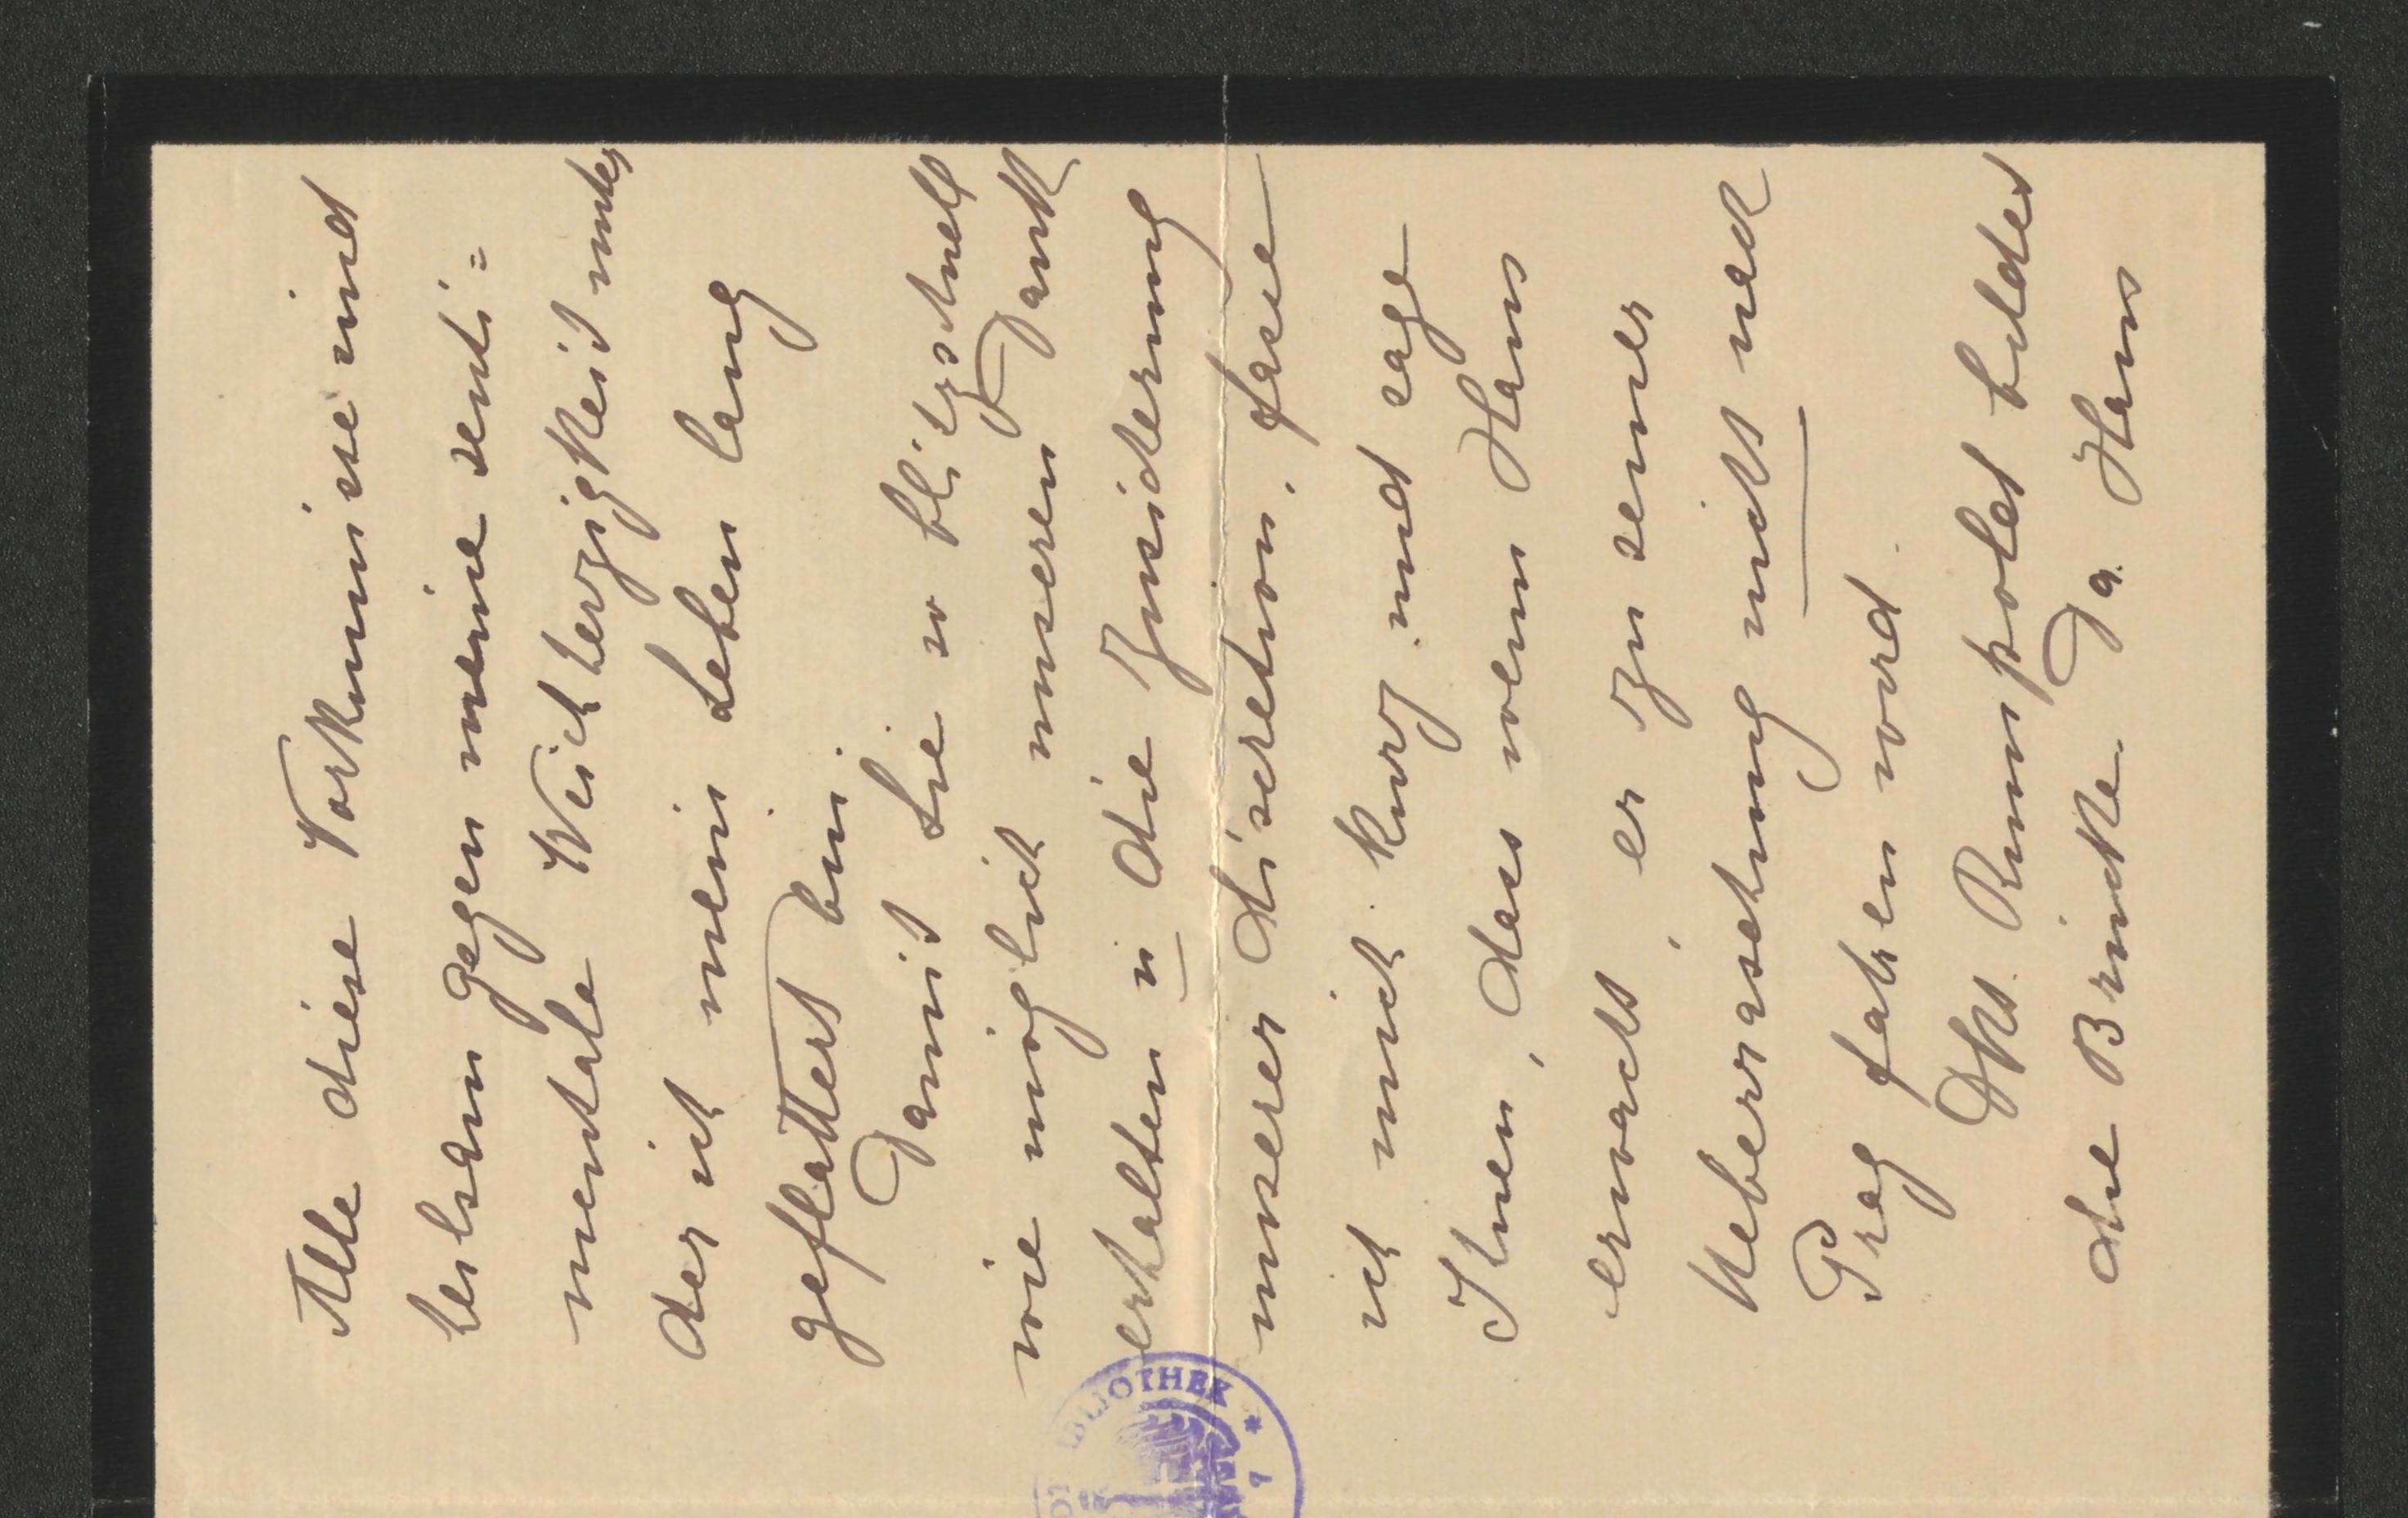 Alle diese Vorkunisse sind
heilsam gegen meine senti=
mentale Weichherzigkeit unter
der ich mein Leben lang
geflattert bin.
Damit Sie so blitzschnell
wie möglich unseren Dank
erhalten u die Zusicherung
unserer discretion, fasse
ich mich kurz und sage
Ihnen, dass wenn Hans
erwacht, er zu seiner
Ueberraschung nicht nach
Prag fahren wird
Dr. Rumpolds bildet
die Brücke. Da Hans
BIBLIOTHEK